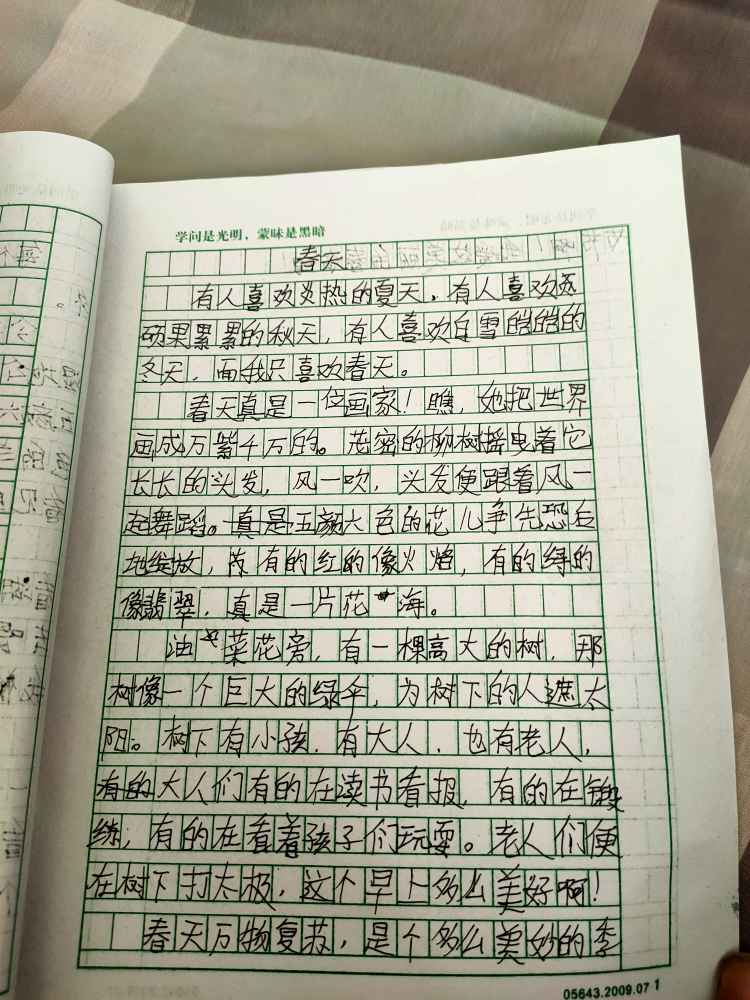 学问是光明，蒙昧是黑暗
春天
有人喜欢炎热的夏天，有人喜欢
硕果累累的秋天，有人喜欢白雪皑皑的
冬天，而我只喜欢春天。
春天真是一位画家！瞧，她把世界
画成万紫千万的。茂密的柳树摇曳着它
长长的头发，风一吹，头发便跟着风一
起舞蹈。真是五颜六色的花儿争先恐后
地绽放，有的红的像火焰，有的绿的
像翡翠，真是一片花海。
油菜花旁，有一棵高大的树，那
树像一个巨大的绿伞，为树下的人遮太
阳。树下有小孩，有大人，也有老人，
有的大人们有的在读书看报，有的在锻
练，有的在看着孩子们玩耍。老人们便
在树下打太极，这个早上多么美好啊！
春天万物复苏，是个多么美妙的季
05643.2009.07 1